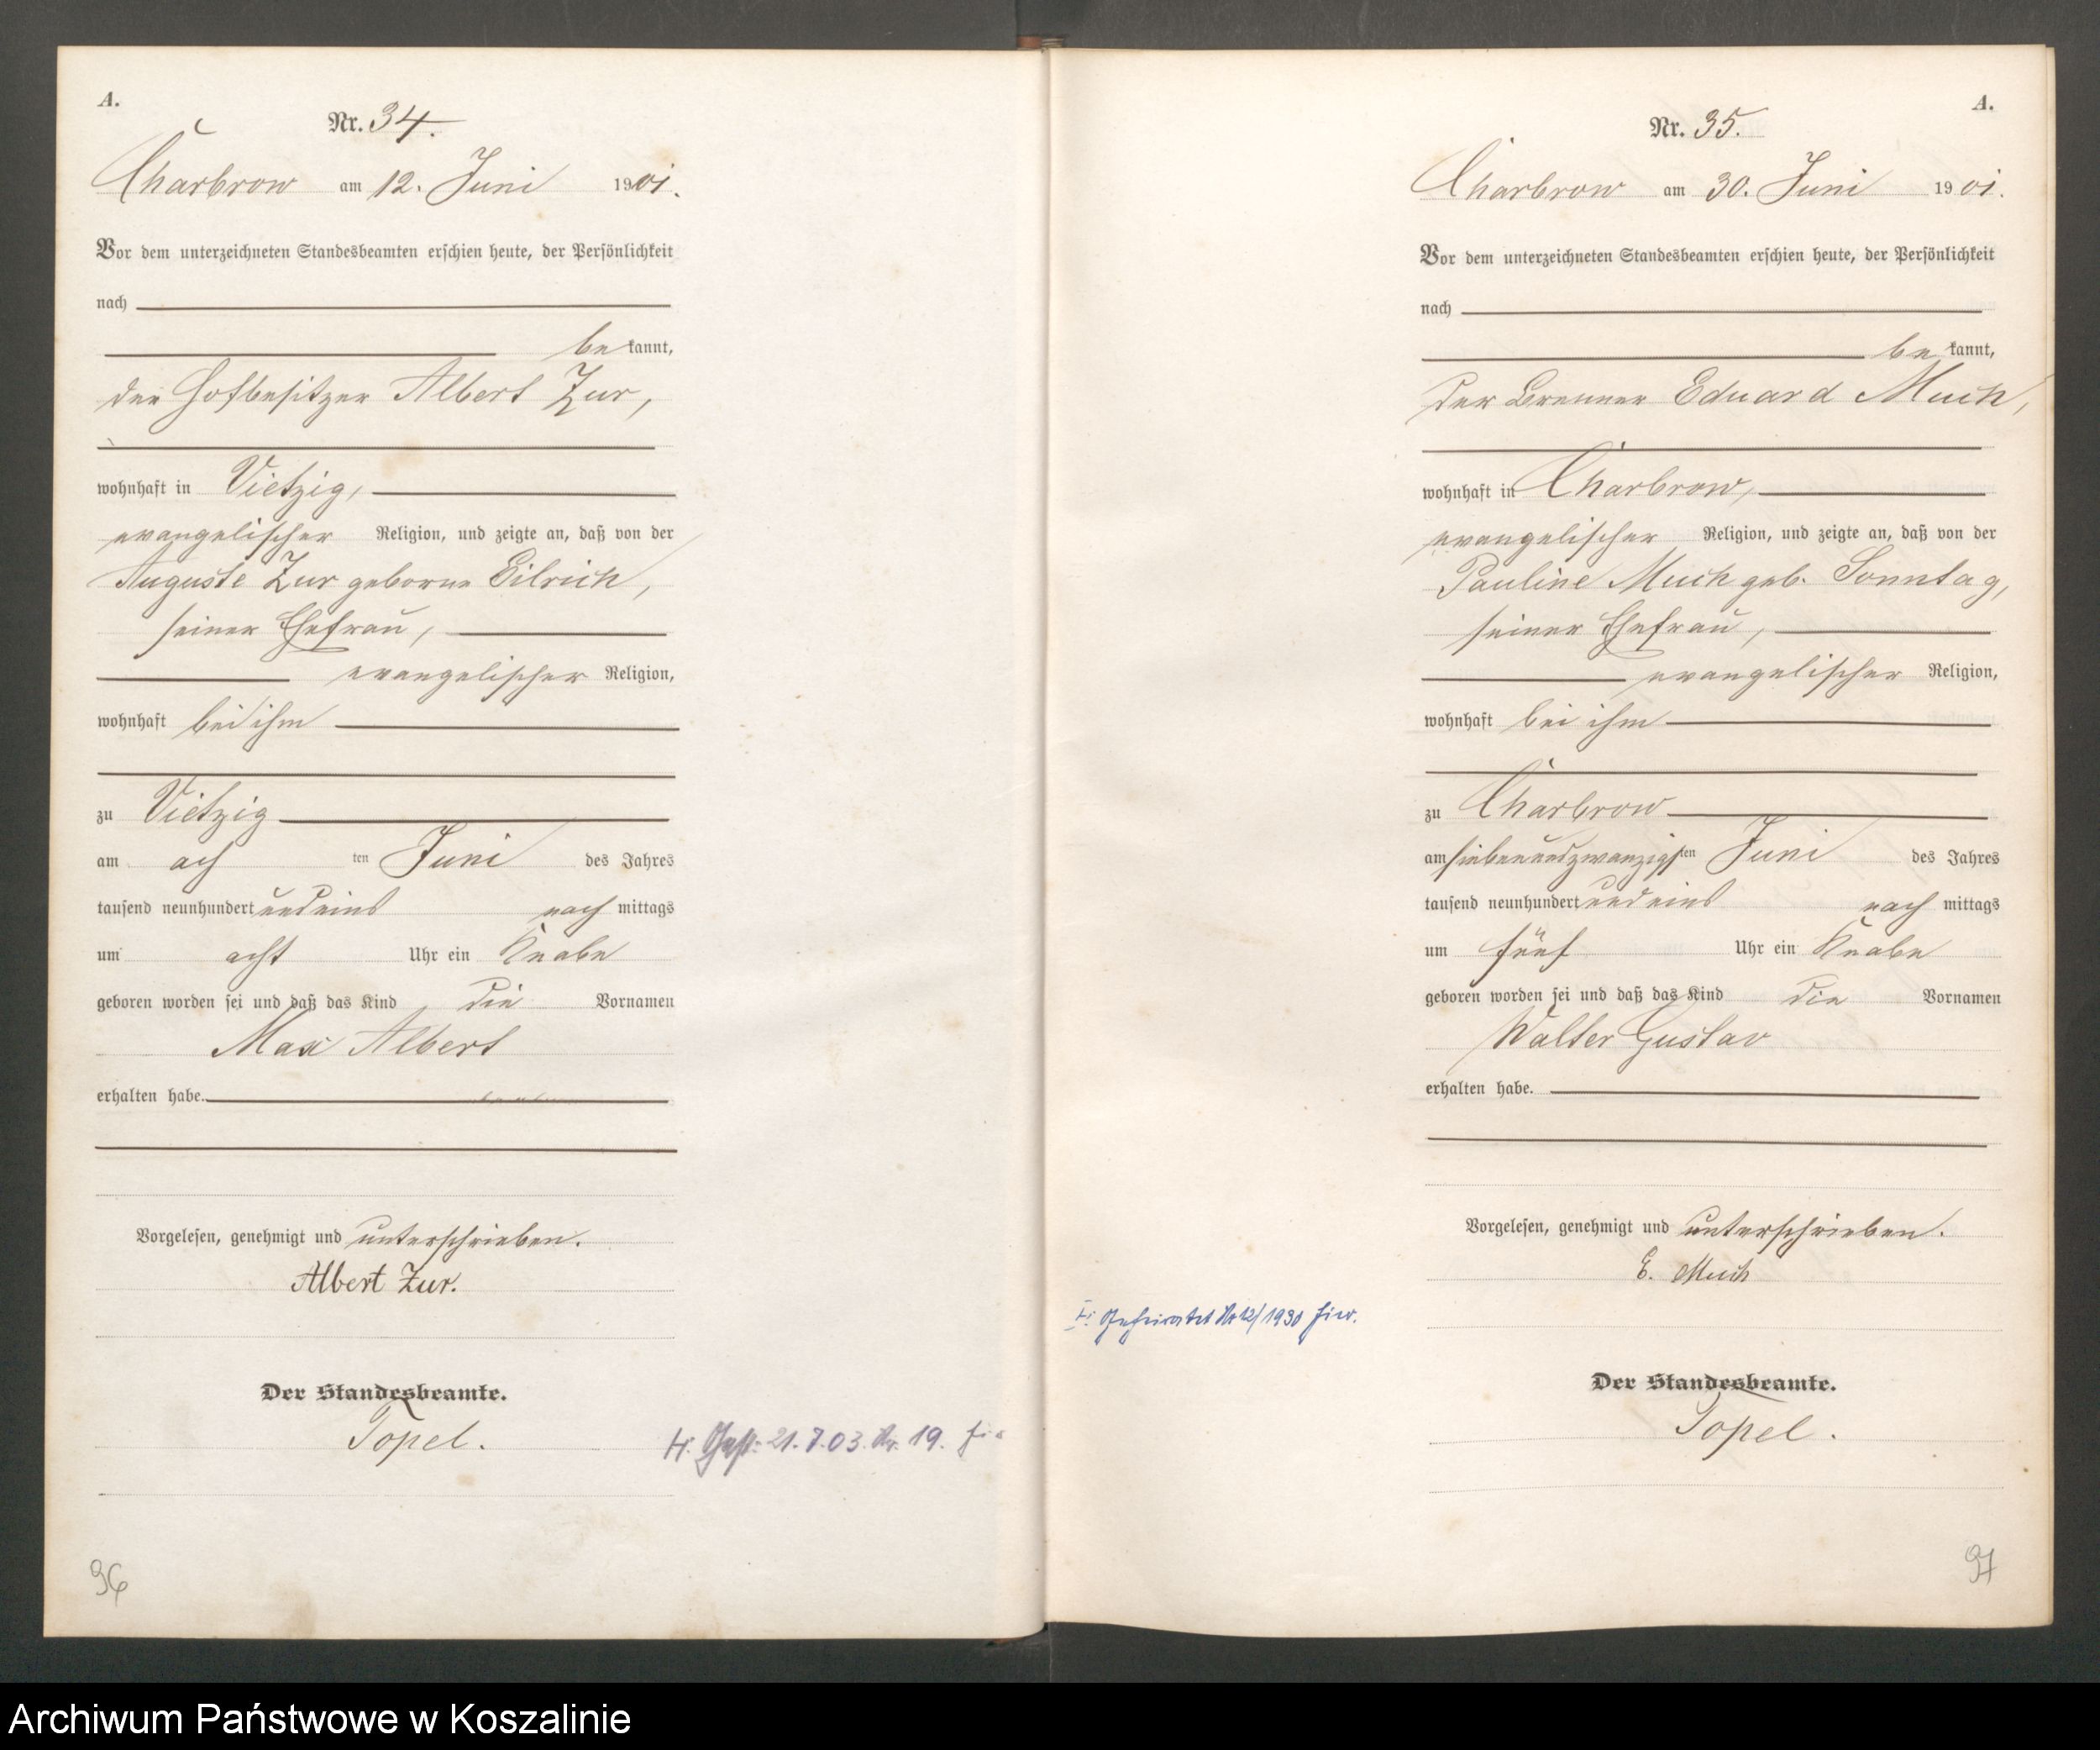 A.
Nr. 34.
Charbrow am 12. Juni 1901.
Vor dem unterzeichneten Standesbeamten erschien heute, der Persönlichkeit
nach
be kannt,
der Hofbesitzer Albert Zur,
wohnhaft in Vietzig,
evangelischer Religion, und zeigte an, daß von der
Auguste Zur geborne Eilrich,
seiner Ehefrau,
evangelischer Religion,
wohnhaft bei ihm
zu Vietzig
am ach ten Juni des Jahres
tausend neunhundert und eins nach mittags
um acht Uhr ein Knabe
geboren worden sei und daß das Kind die Vornamen
Max Albert
erhalten habe.
Vorgelesen, genehmigt und unterschrieben.
Albert Zur.
Der Standesbeamte.
Topel.
H. Gest. 21.7.03. Nr. 19.
96
A.
Nr. 35.
Charbrow am 30. Juni 1901.
Vor dem unterzeichneten Standesbeamten erschien heute, der Persönlichkeit
nach
be kannt,
der Brenner Eduard Much,
wohnhaft in Charbrow,
evangelischer Religion, und zeigte an, daß von der
Pauline Much geb. Sonntag,
seiner Ehefrau,
evangelischer Religion,
wohnhaft bei ihm
zu Charbrow
am siebenundzwanzigsten Juni des Jahres
tausend neunhundert und eins nach mittags
um fünf Uhr ein Knabe
geboren worden sei und daß das Kind die Vornamen
Walter Gustav
erhalten habe.
Vorgelesen, genehmigt und unterschrieben.
E. Much
H. Geheiratet Nr 12/1930 hier.
Der Standesbeamte.
Topel.
97
Archiwum Państwowe w Koszalinie